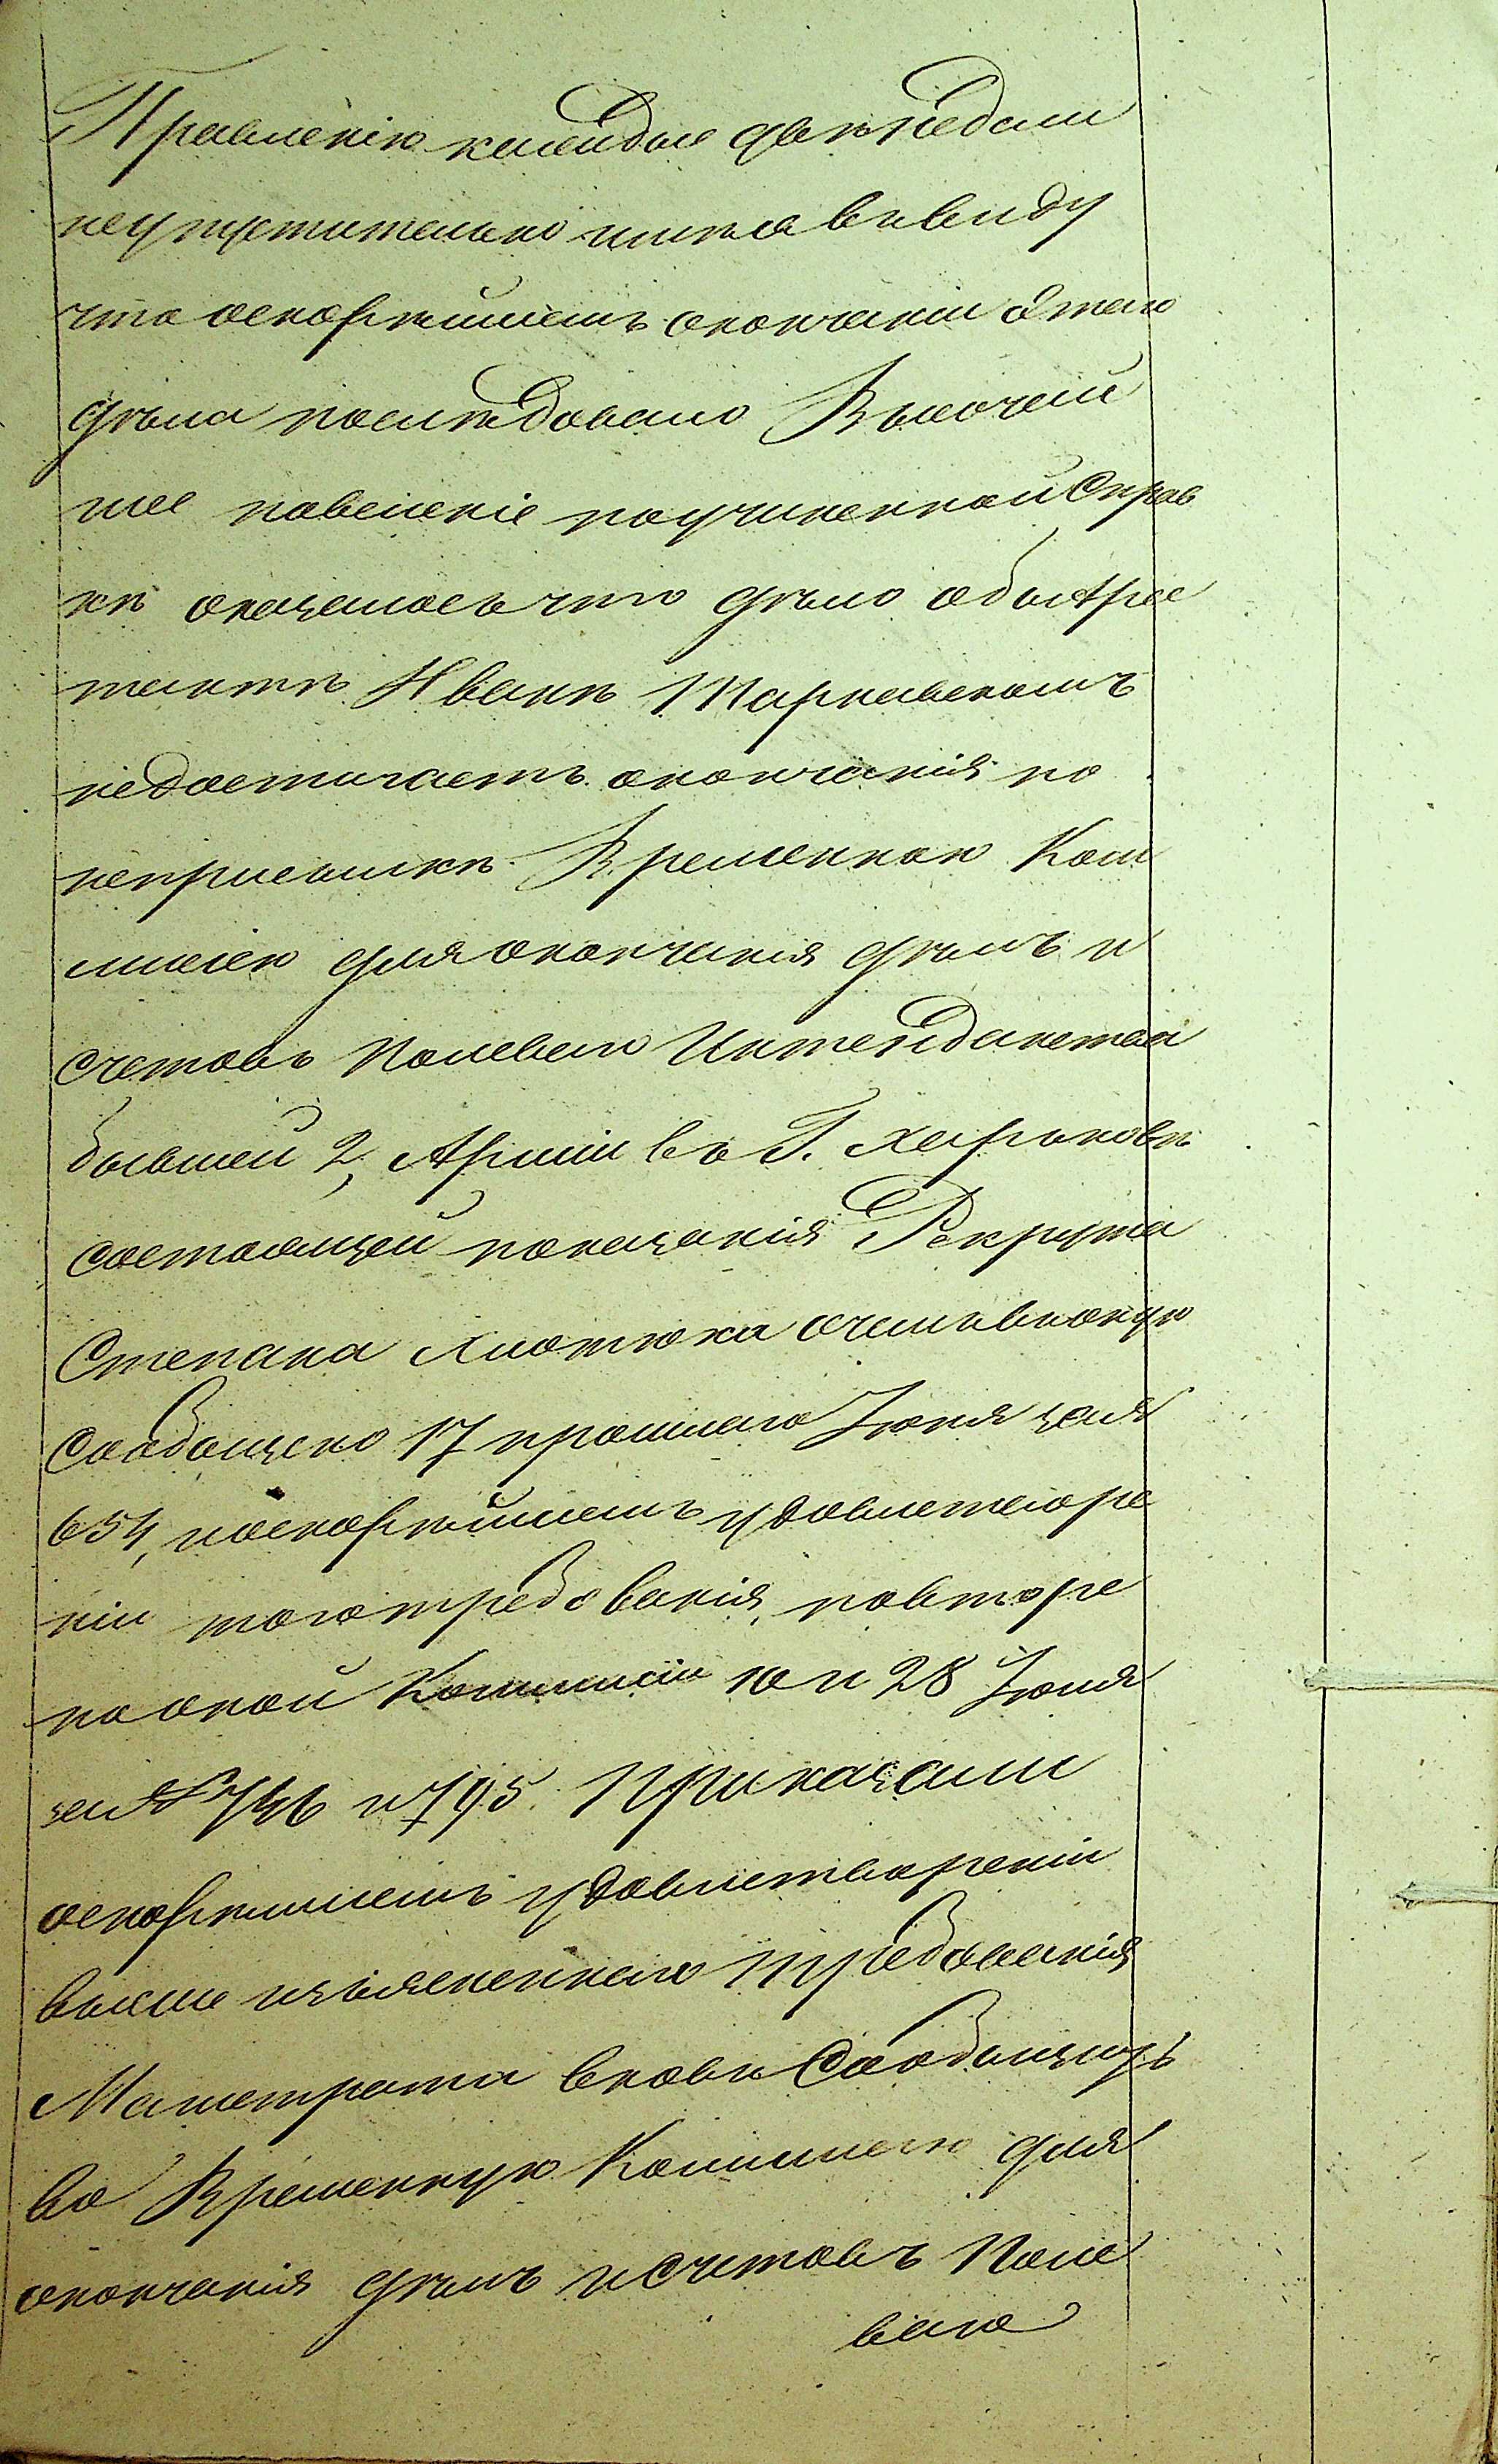 Правленію каждые двѣ недели
неупустительно имѣя въ виду
что оскорѣйшемъ окончаніи этаго
дѣла последовало Высочай
шее повеленіе поучиненной Справ
кѣ оказалось что дѣло обЪ Аре
стантѣ Иванѣ Тарнавскомъ
недостигаетъ окончанія по
неприсылкѣ Временною Ком
мисіею для окончанія дѣлъ и
счетовъ Полеваго Интенданства
бывшей 2, Арміи въ Г. Харьковѣ
состоящей показанія Рекрута
Степана очемъ вконую
Сообщено 17 прошлаго Іюня заN
654, поскорѣйшемъ удовлетворе
ніи тоготребованія, повторе
но оной Коммисіи 10 и 28 Іюля
заN 746 и 795. Приказали
оскорѣйшемъ удовлетвореніи
выше изъясненнаго требованія
Магистрата вновь Сообщить
во Временную Коммисію для
окончанія дѣлъ и Счетовъ Поле
ваго